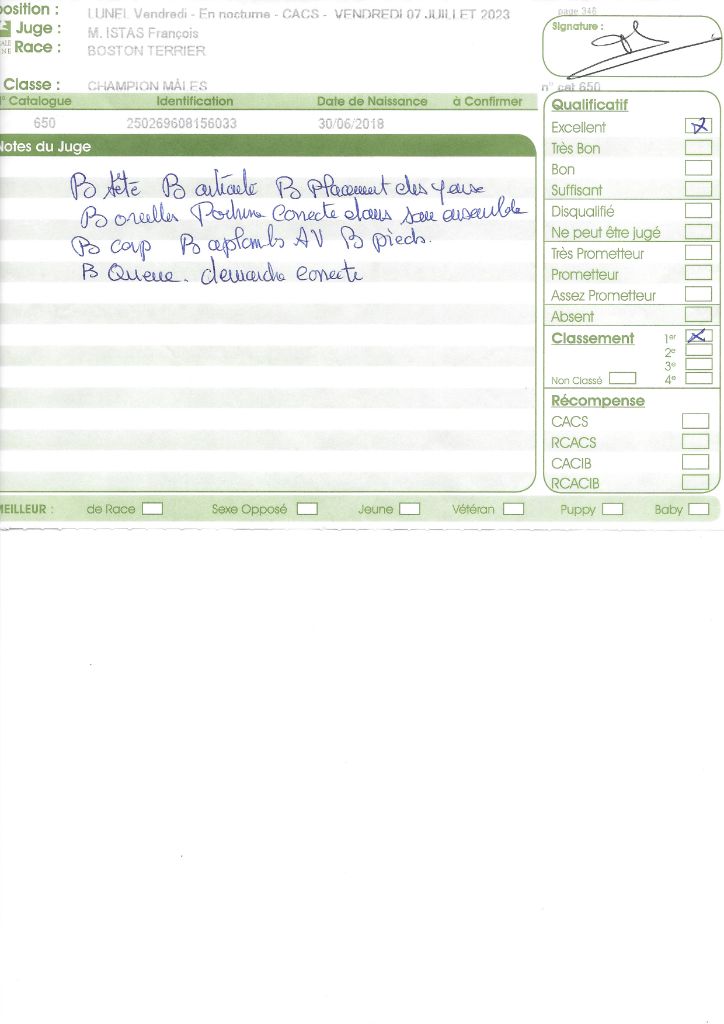 position : LUNEL Vendredi - En nocturne - CACS - VENDREDI 07 JUILLET 2023
page 346
Juge : M. ISTAS François
Race : BOSTON TERRIER
Signature :
Classe : CHAMPION MÂLES
n° cat 650
N° Catalogue Identification Date de Naissance à Confirmer
650 250269608156033 30/06/2018
Notes du Juge
B tête B B Placement des yeux
B oreilles Poitrine Correcte dans son ensemble
B corp B aplombs AV B pieds.
B Queue. demarche correcte
Qualificatif
Excellent
Très Bon
Bon
Suffisant
Disqualifié
Ne peut être jugé
Très Prometteur
Prometteur
Assez Prometteur
Absent
Classement 1er
2e
3e
Non Classé 4e
Récompense
CACS
RCACS
CACIB
RCACIB
MEILLEUR : de Race Sexe Opposé Jeune Vétéran Puppy Baby